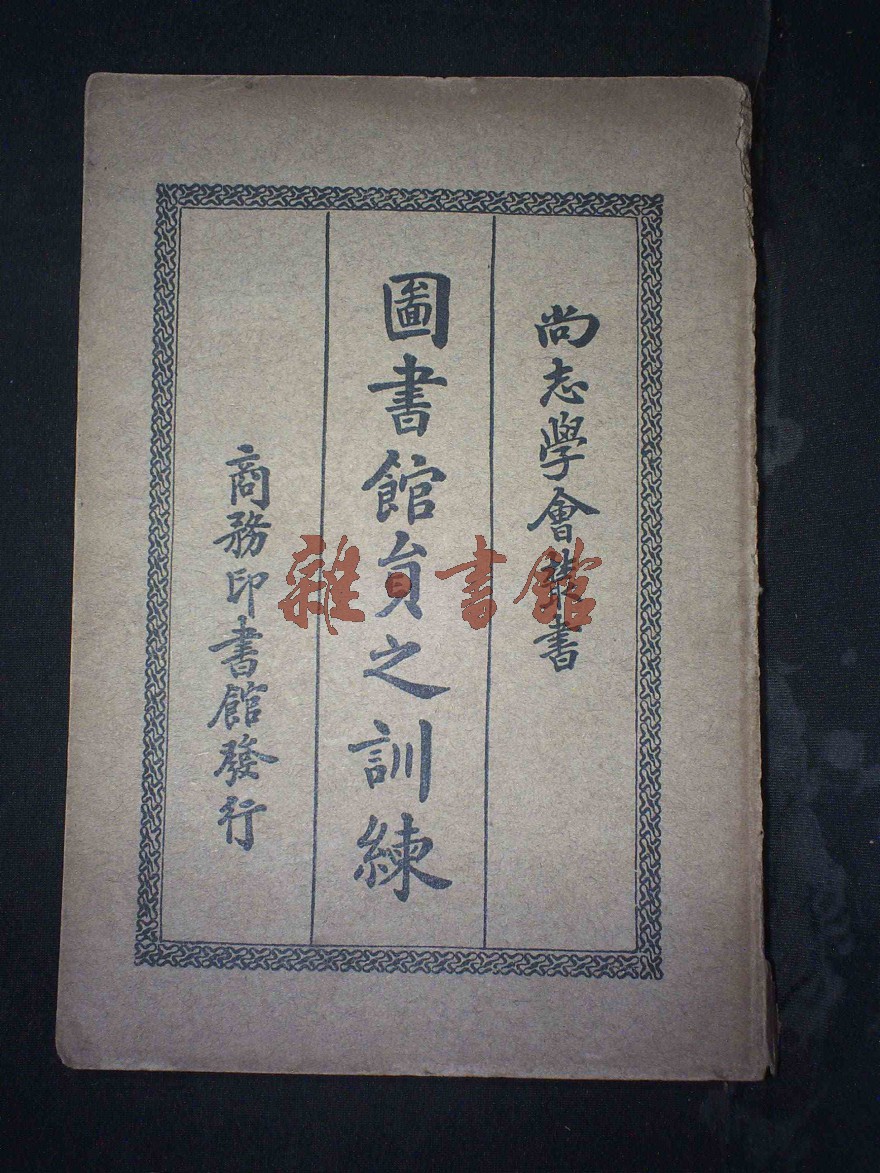 尚志學會叢書
圖書館員之訓練
商務印書館發行
雜·書館